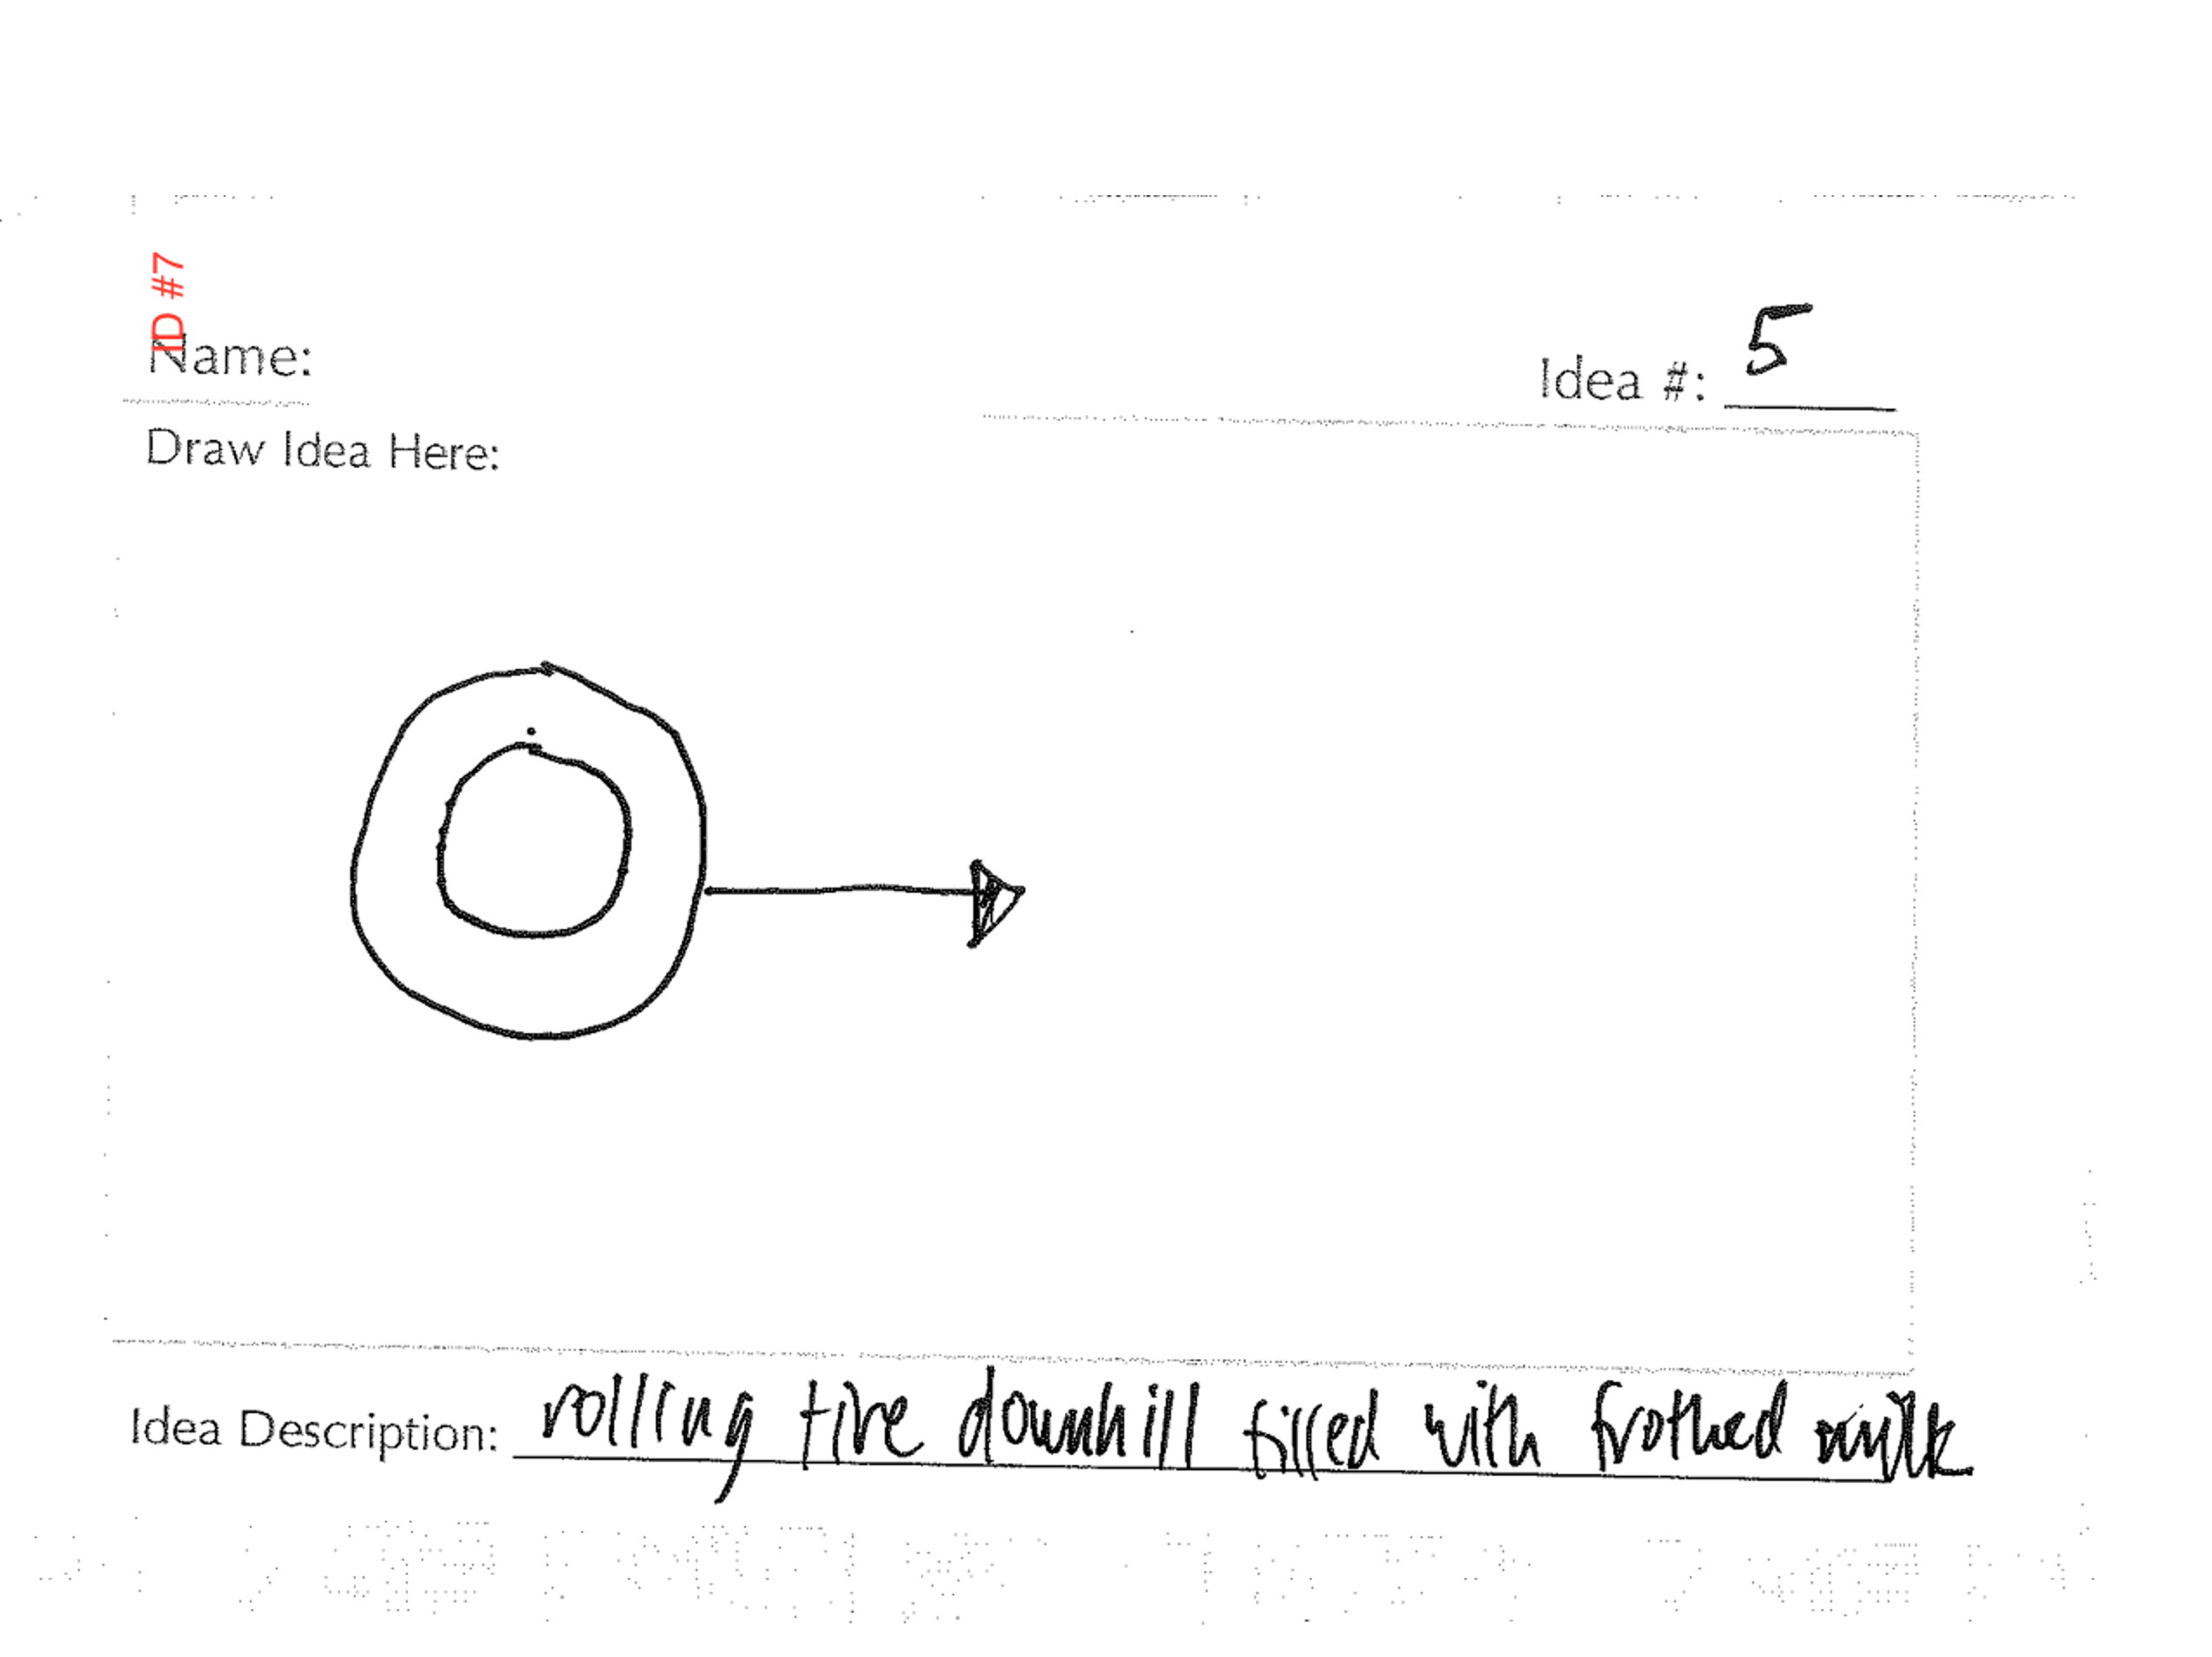 ID #7
Name:
Idea #: 5
Draw Idea Here:
Idea Description: rolling tire downhill filled with frothed milk